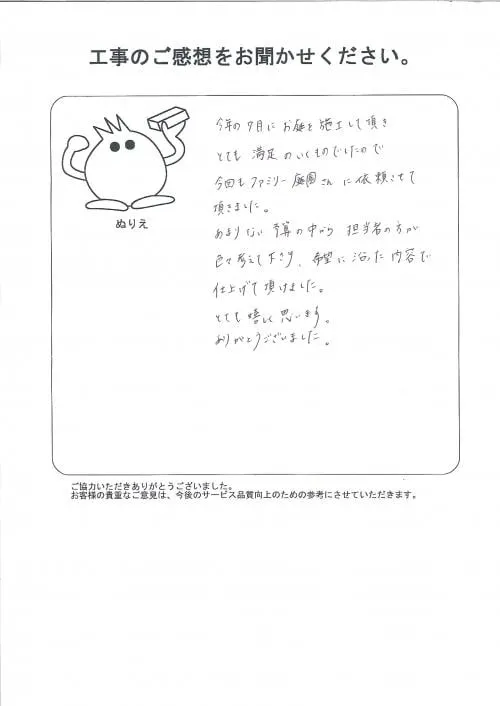 工事のご感想をお聞かせください。
ぬりえ
今年の7月にお庭を施工して頂き
とても 満足のいくものでしたので
今回もファミリー庭園さんに依頼させて
頂きました。
あまりない 予算の中から 担当者の方が
色々考えて下さり、希望に沿った内容で
仕上げて頂けました。
とても嬉しく思います。
ありがとうございました。
ご協力いただきありがとうございました。
お客様の貴重なご意見は、今後のサービス品質向上のための参考にさせていただきます。